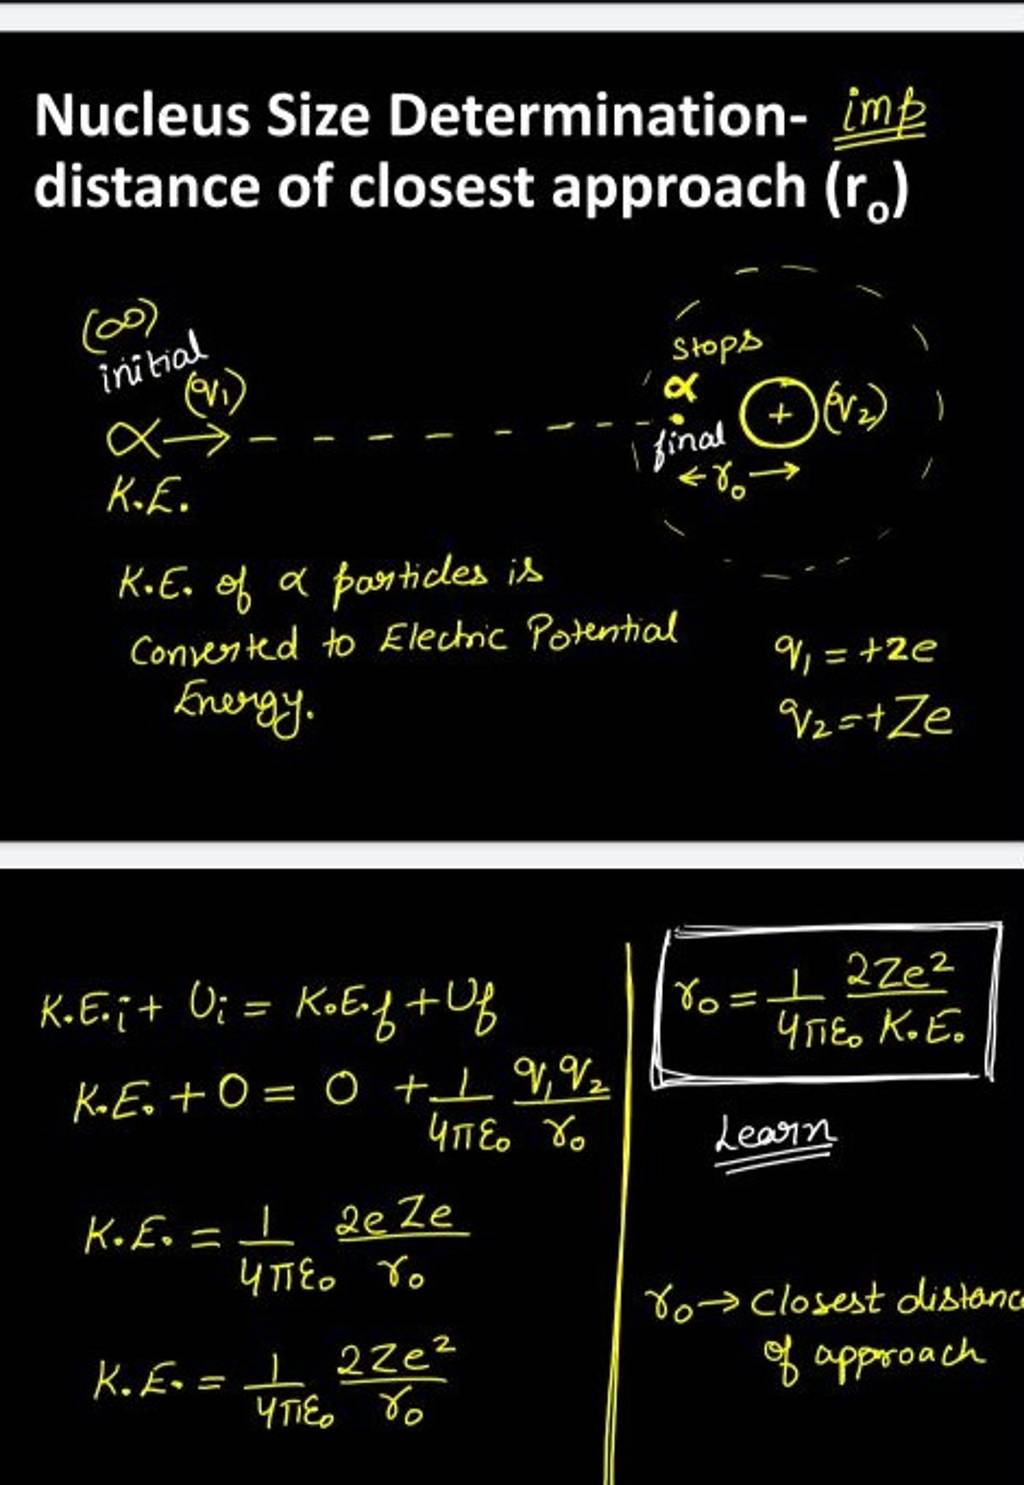 Nucleus Size Determination- imp
distance of closest approach (r₀)
(∞)
initial
(q₁)
α
K.E.
stops
α
(q₂)
+
final
r₀
K.E. of α particles is
Converted to Electric Potential
Energy.
q₁ = +2e
q₂ = +Ze
K.E.i + Ui = K.E.f + Uf
K.E. + 0 = 0 + 1/4πε₀ q₁q₂/r₀
K.E. = 1/4πε₀ 2eZe/r₀
K.E. = 1/4πε₀ 2Ze²/r₀
r₀ = 1/4πε₀ 2Ze²/K.E.
Learn
r₀ → Closest distanc
of approach